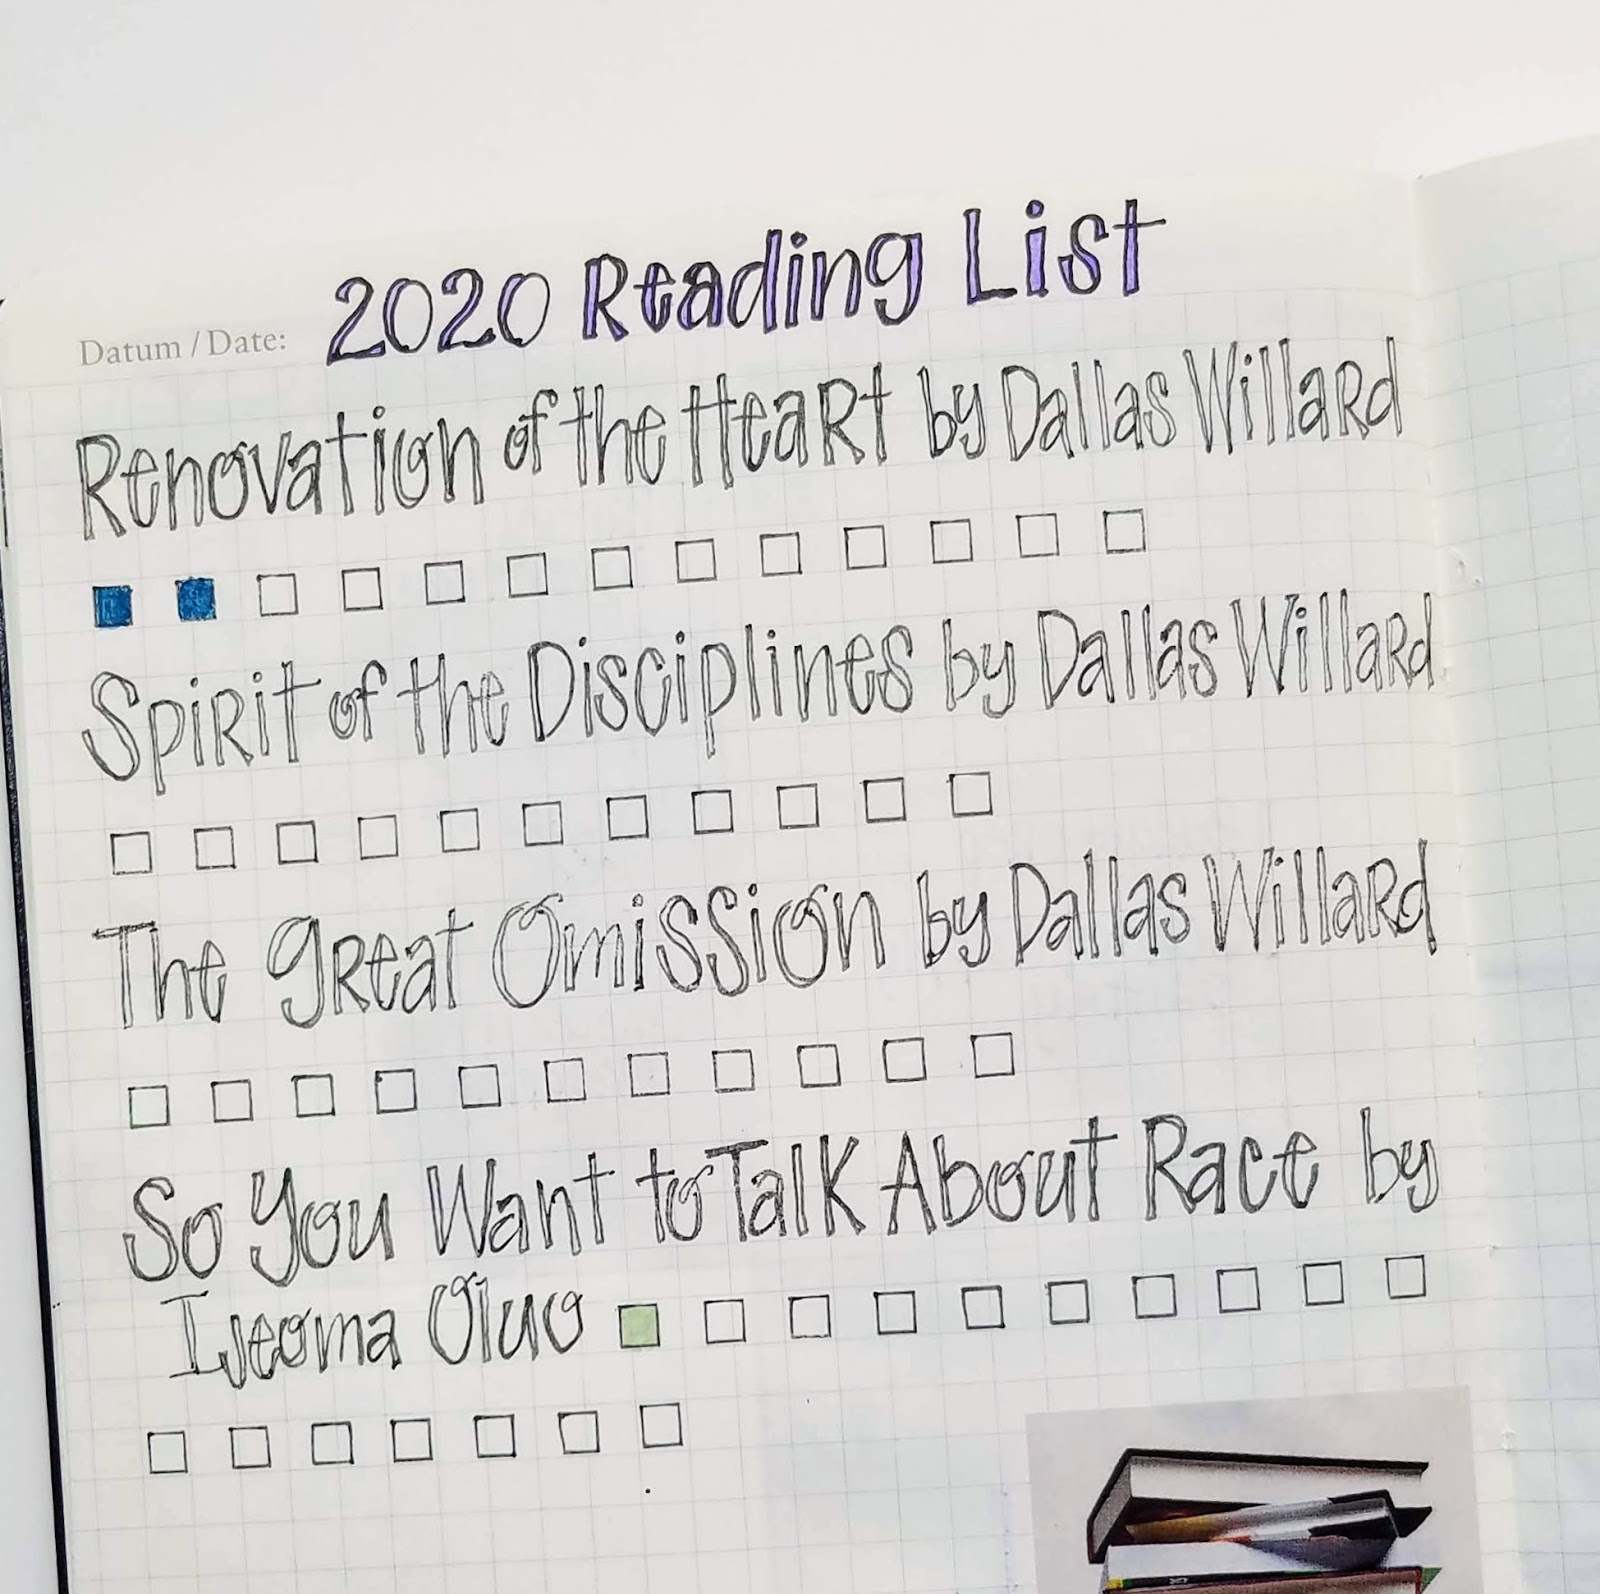 2020 Reading List
Datum / Date:
Renovation of the Heart by Dallas Willard
Spirit of the Disciplines by Dallas Willard
The Great Omission by Dallas Willard
So You Want to Talk About Race by
Ijeoma Oluo